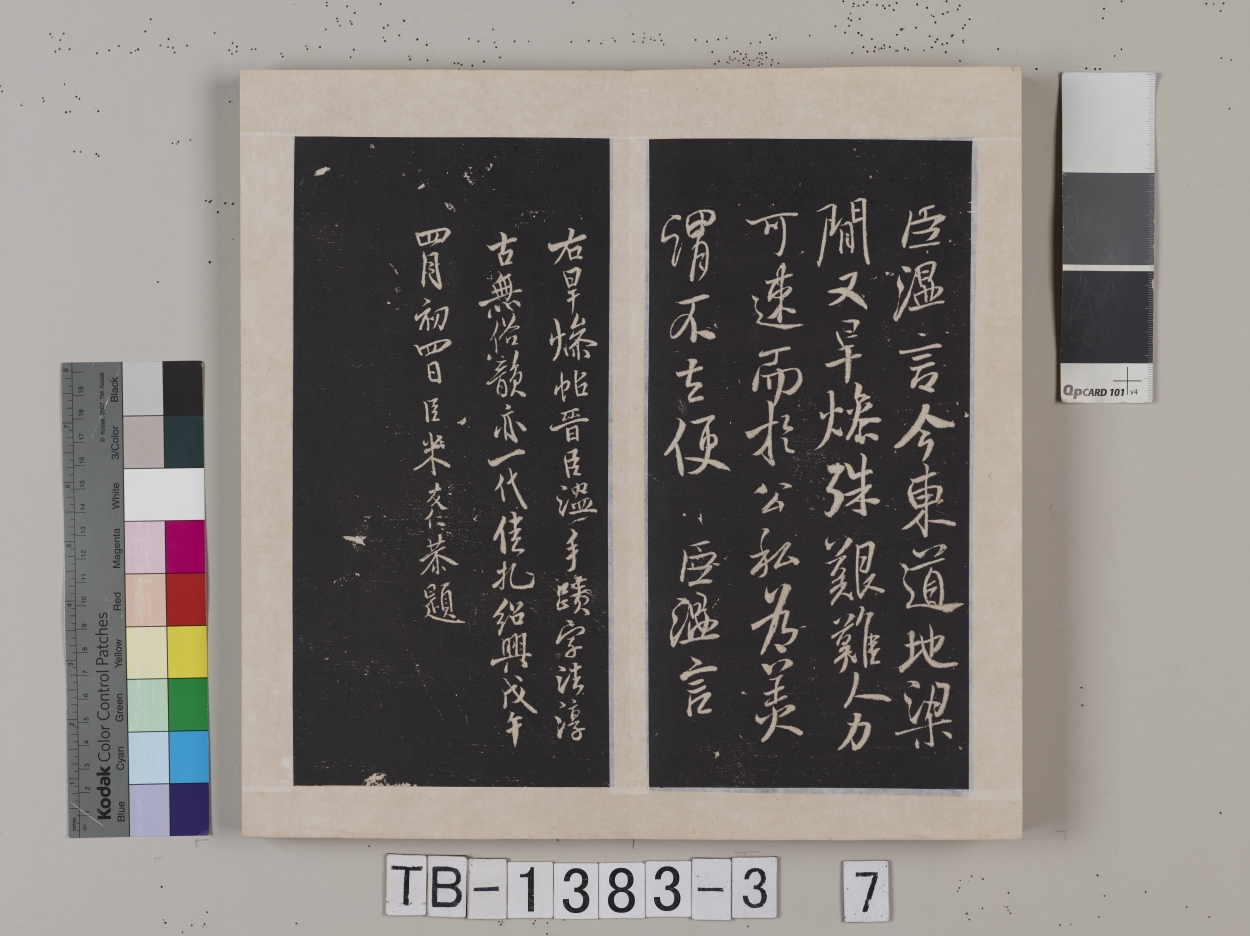 臣溫言今東道地梁
閒又旱燥殊艱難人力
可速而於公私為美
謂不去便 臣溫言
右旱燥帖晉臣溫手蹟字法淳
古無俗韻亦一代佳札紹興戊午
四月初四日臣米友仁恭題
Kodak Color Control Patches
© Kodak, 2007 TM: Kodak
Blue Cyan Green Yellow Red Magenta White 3/Color Black
QPCARD 101 v4
TB-1383-3 7